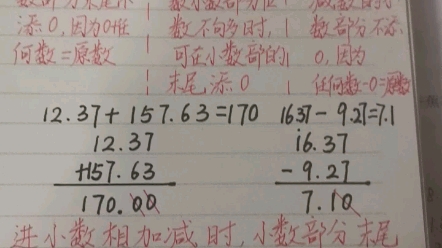 添0,因为0+任
何数=原数
数不够多时,
可在小数部的
末尾添0
数部分不添
0,因为
任何数-0=原数
12.37+157.63=170
12.37
+157.63
170.00
16.37-9.27=7.1
16.37
-9.27
7.10
进小数相加减时,小数部分末尾